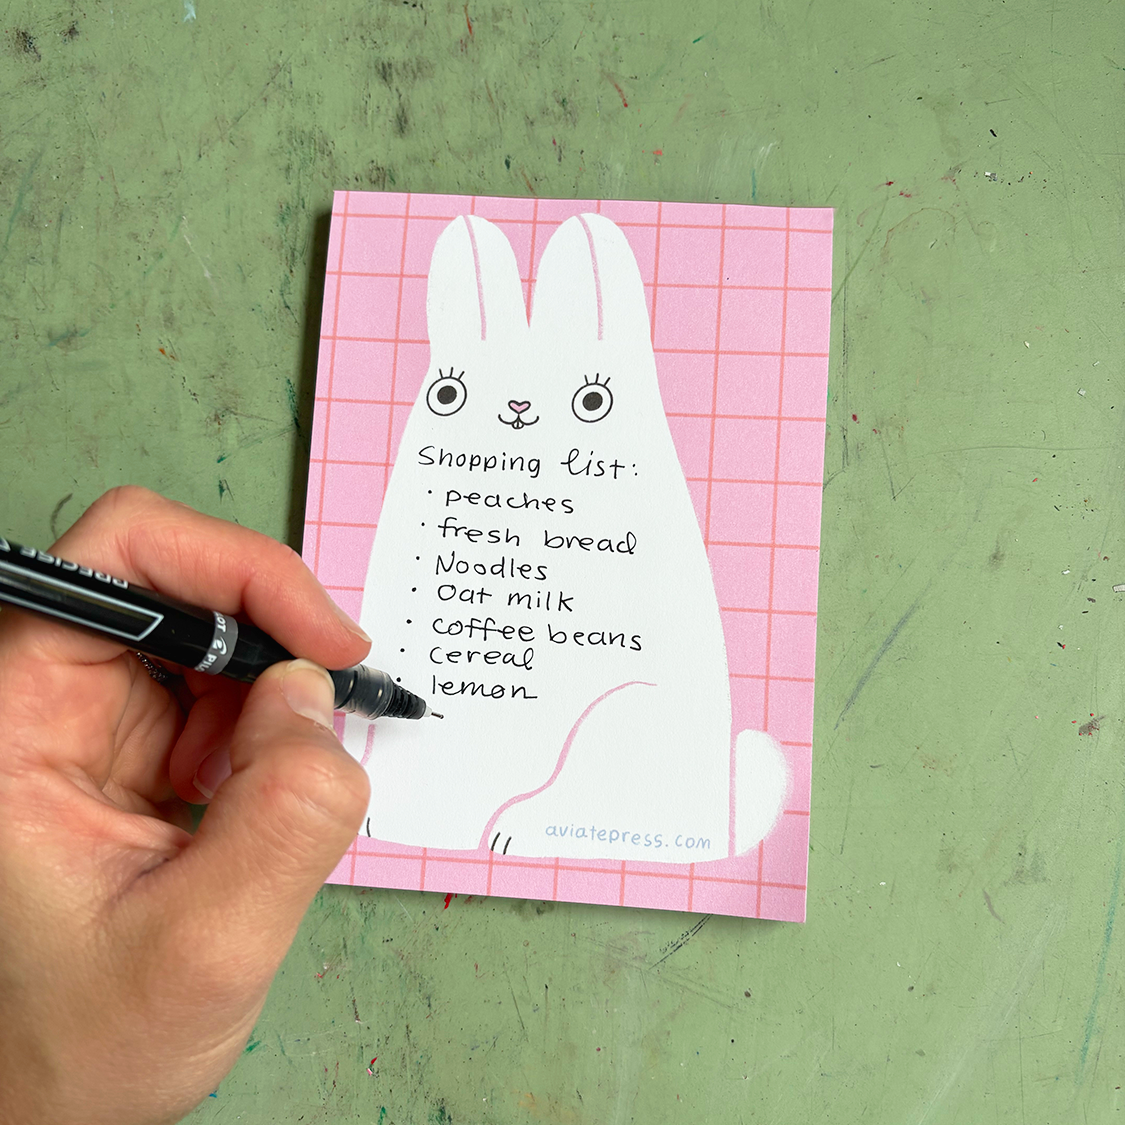 Shopping list:
· peaches
· fresh bread
· Noodles
· Oat milk
· coffee beans
· cereal
· lemon
aviatepress.com
PRECISE
PILOT